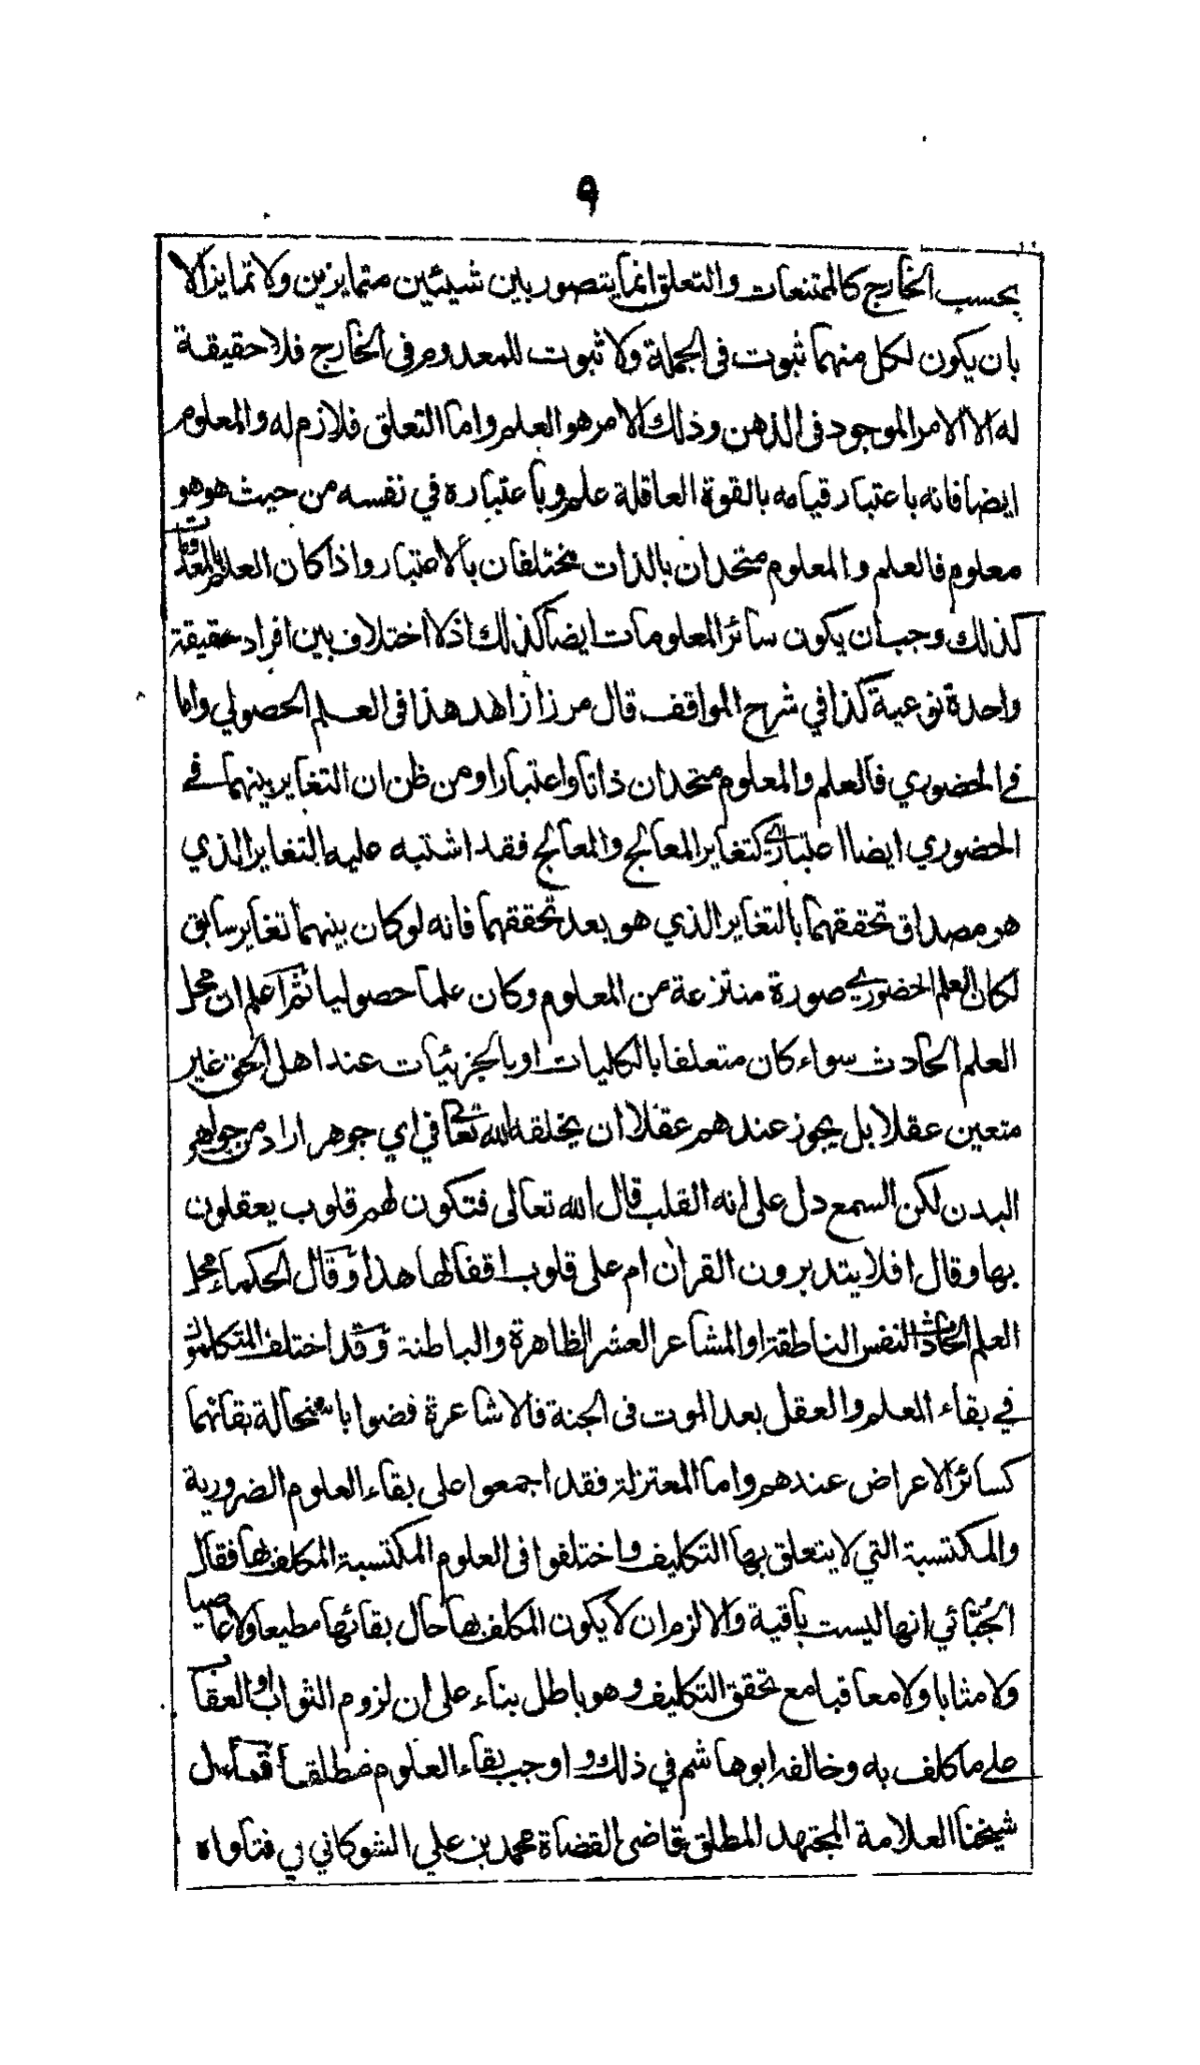 ٩
بحسب الخارج كالممتنعات والتعلق انما يتصور بين شيئين متمايزين ولا تمايز الا
بان يكون لكل منهما ثبوت في الجملة ولا ثبوت للمعدوم في الخارج فلا حقيقة
له الا الامر الموجود في الذهن وذلك الامر هو العلم واما التعلق فلازم له والمعلوم
ايضا فانه باعتبار قيامه بالقوة العاقلة علم وباعتباره في نفسه من حيث هو هو
معلوم فالعلم والمعلوم متحدان بالذات مختلفان بالاعتبار واذا كان العلم بالمعدومات
كذلك وجب ان يكون سائر المعلومات ايضا كذلك اذ لا اختلاف بين افراد حقيقة
واحدة نوعية كذا في شرح المواقف قال مرزا زاهد هذا في العلم الحصولي واما
في الحضوري فالعلم والمعلوم متحدان ذاتا واعتبارا ومن ظن ان التغاير بينهما في
الحضوري ايضا اعتباري كتغاير المعالج والمعالج فقد اشتبه عليه التغاير الذي
هو مصداق تحققهما بالتغاير الذي هو بعد تحققهما فانه لو كان بينهما تغاير سابق
لكان العلم الحضوري صورة منتزعة من المعلوم وكان علما حصوليا ثم اعلم ان محل
العلم الحادث سواء كان متعلقا بالكليات او بالجزئيات عند اهل الحق غير
متعين عقلا بل يجوز عندهم عقلا ان يخلقه الله تعالى في اي جوهر اراد من جواهر
البدن لكن السمع دل على انه القلب قال الله تعالى فتكون لهم قلوب يعقلون
بها وقال افلا يتدبرون القران ام على قلوب اقفالها هذا وقال الحكماء محل
العلم الحادث النفس الناطقة او المشاعر العشر الظاهرة والباطنة وقد اختلف المتكلمون
في بقاء العلم والعقل بعد الموت في الجنة فالاشاعرة قضوا باستحالة بقائهما
كسائر الاعراض عندهم واما المعتزلة فقد اجمعوا على بقاء العلوم الضرورية
والمكتسبة التي لا يتعلق بها التكليف واختلفوا في العلوم المكتسبة المكلف بها فقال
الجُبّائي انها ليست باقية والا لزم ان لا يكون المكلف بها حال بقائها مطيعا ولا عاصيا
ولا مثابا ولا معاقبا مع تحقق التكليف وهو باطل بناء على ان لزوم الثواب او العقاب
على ما كلف به وخالفه ابو هاشم في ذلك واوجب بقاء العلوم مطلقا قال
شيخنا العلامة المجتهد المطلق قاضي القضاة محمد بن علي الشوكاني في فتاواه